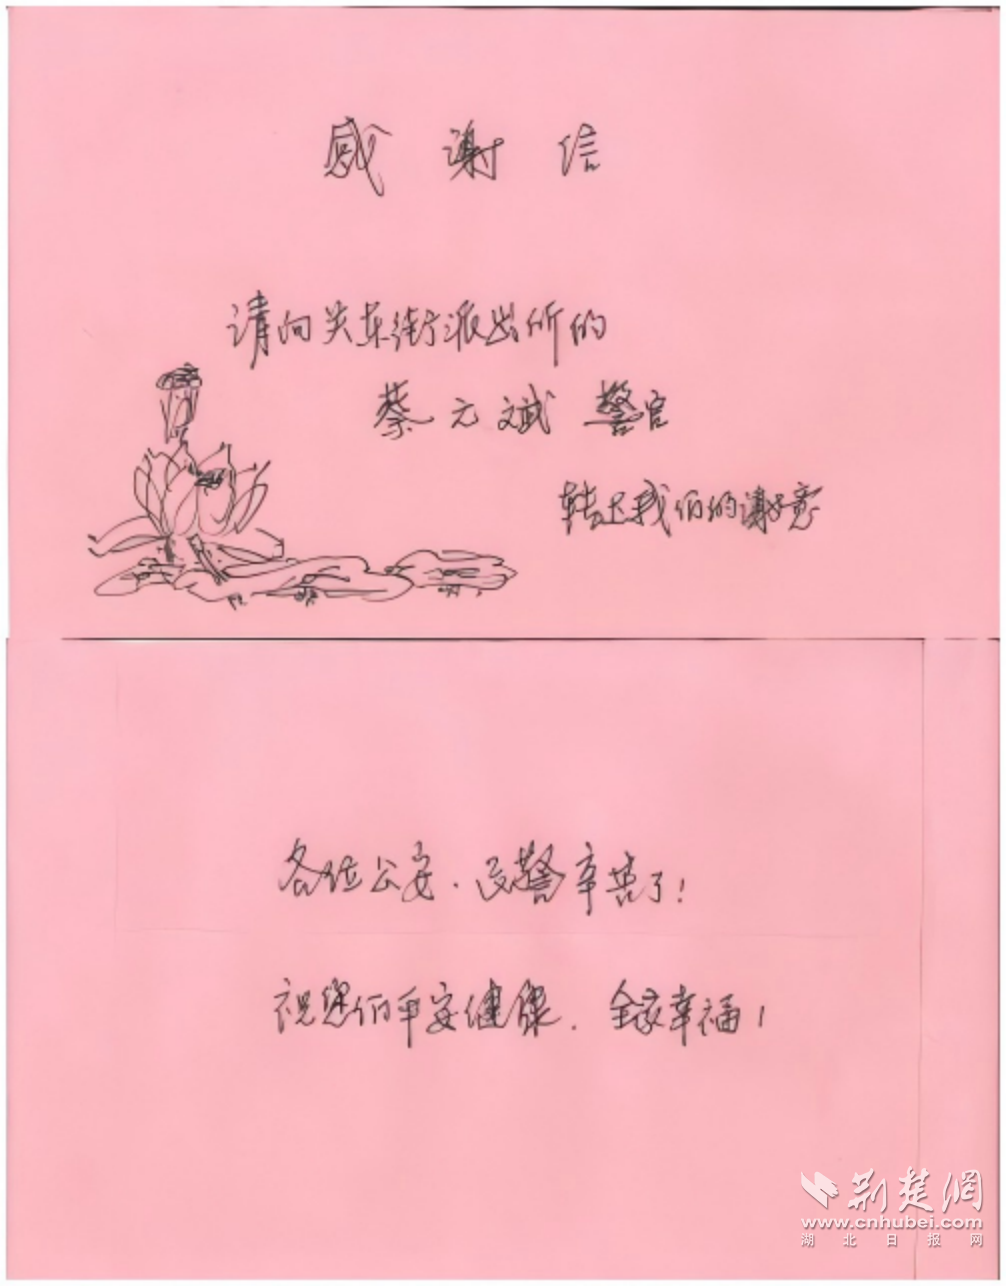 感谢信
请向关东街派出所的
蔡元斌 警官
转达我们的谢意
各位公安、民警辛苦了！
祝您们平安健康、全家幸福！
荆楚网
www.cnhubei.com
湖北日报网